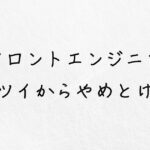 ロントエンジニ
ツイからやめとけ